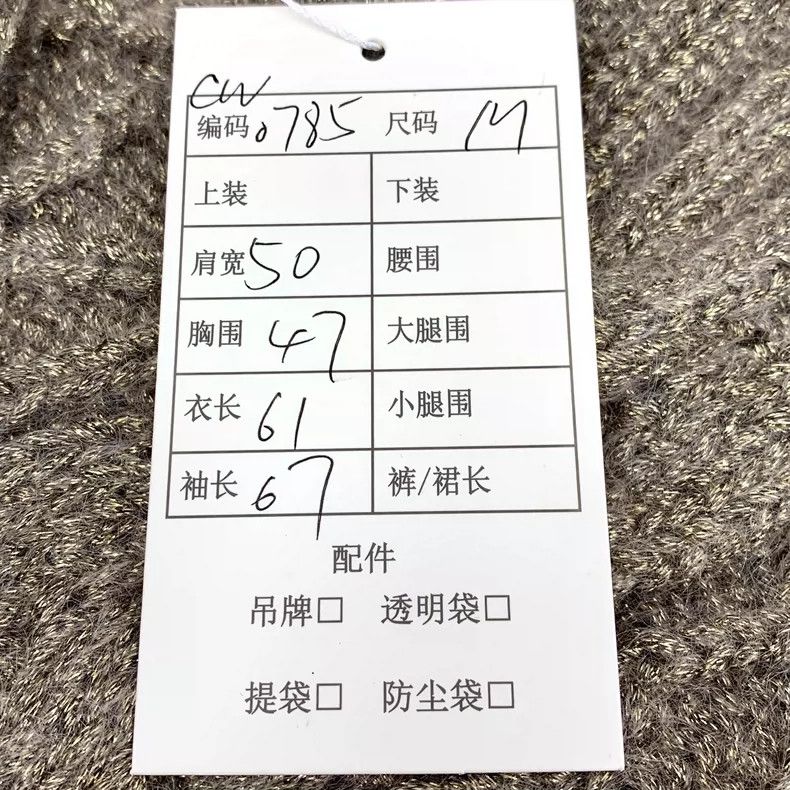 CW
编码 0785 尺码 M
上装 下装
肩宽 50 腰围
胸围 47 大腿围
衣长 61 小腿围
袖长 67 裤/裙长
配件
吊牌□ 透明袋□
提袋□ 防尘袋□